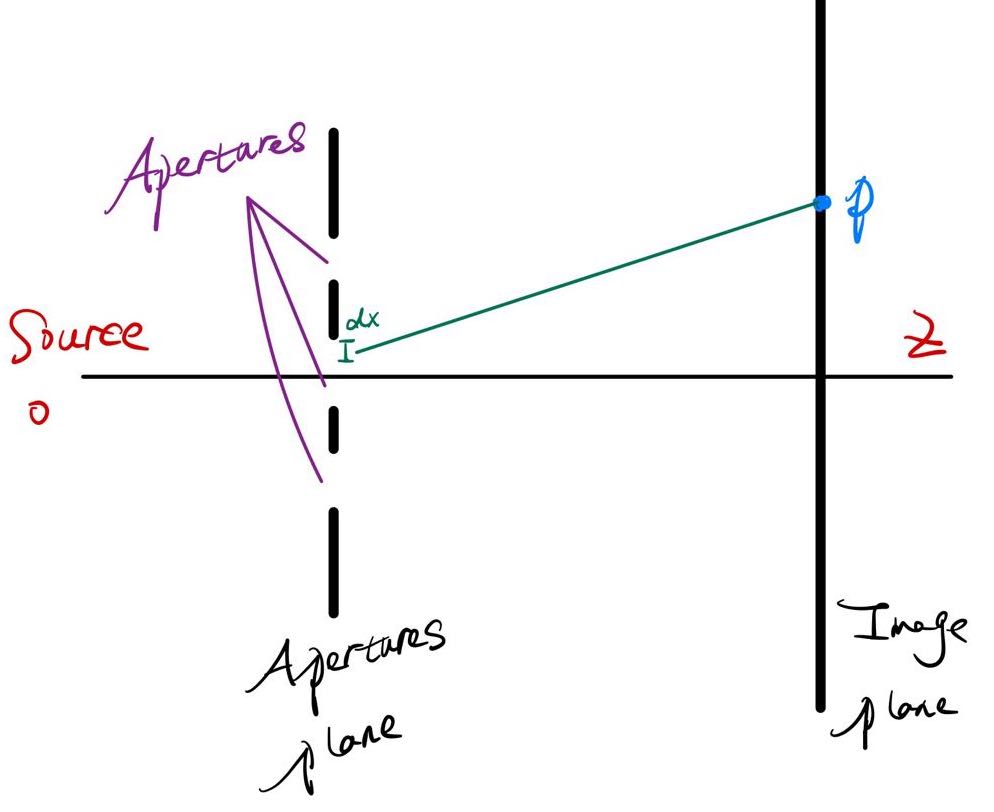 Apertures
p
dx
I
Source
o
Z
Apertures
plane
Image
plane